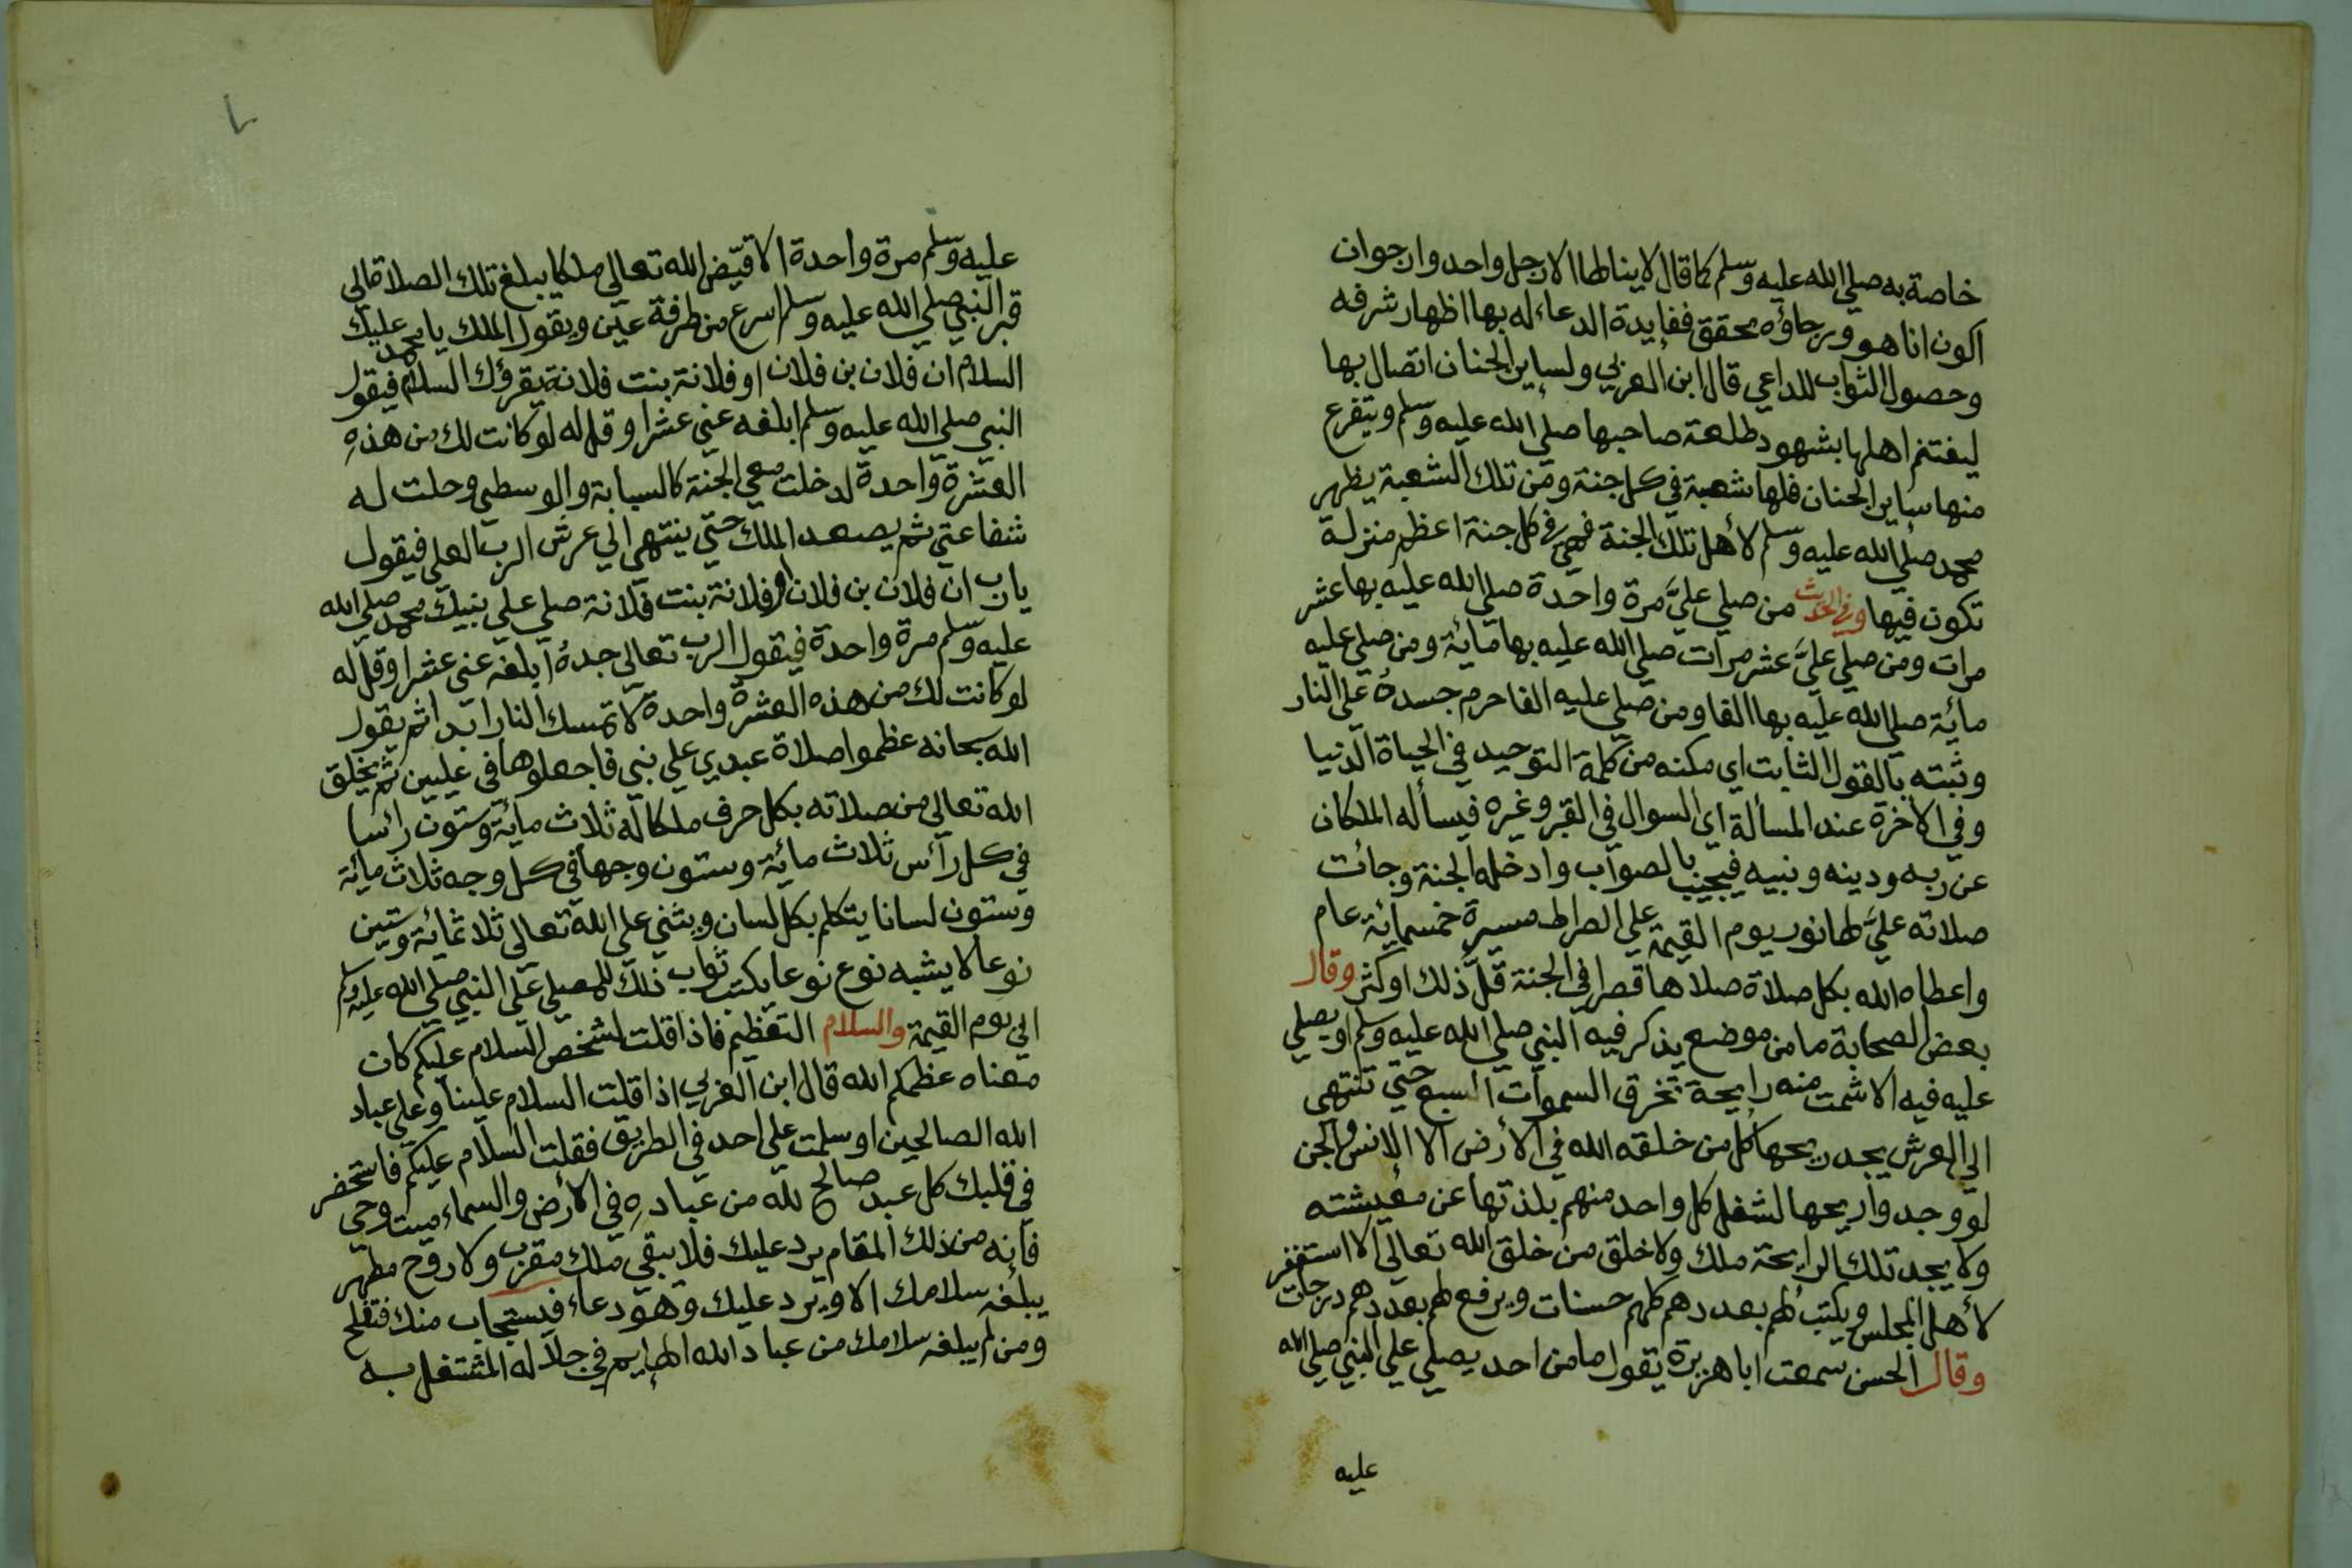 خاصة به صلي الله عليه وسلم كما قال لا ينالها الا رجل واحد وارجوان
اكون انا هو ورجاؤه محقق ففايدة الدعاء له بها اظهار شرفه
وحصول الثواب للداعي قال ابن العربي ولساير الجنان اتصال بها
ليغتنم اهلها بشهود طلعة صاحبها صلي الله عليه وسلم ويتفرع
منها ساير الجنان فلها شعبة في كل جنة ومن تلك الشعبة يظهر
محمد صلي الله عليه وسلم لأهل تلك الجنة فهي في كل جنة اعظم منزلة
تكون فيها وفي الحديث من صلي عليَّ مرة واحدة صلي الله عليه بها عشر
مرات ومن صلي عليَّ عشر مرات صلي الله عليه بها مائة ومن صلي عليه
مائة صلي الله عليه بها الفا ومن صلي عليه الفا حرم جسدهُ علي النار
وثبته بالقول الثابت اي مكنه من كلمة التوحيد في الحياة الدنيا
وفي الاخرة عند المسألة اي السوال في القبر وغيره فيسأله الملكان
عن ربه ودينه ونبيه فيجيب بالصواب وادخله الجنة وجائت
صلاته عليَّ لها نور يوم القيمة علي الصراط مسيرة خمسمائة عام
واعطاه الله بكل صلاة صلاها قصرا في الجنة قل ذلك او كثر وقال
بعض الصحابة ما من موضع يذكر فيه النبي صلي الله عليه وسلم او يصلي
عليه فيه الا شمت منه رايحة تخرق السموات السبع حتي تنتهي
الي العرش يجد ريحها كل من خلقه الله في الأرض الا الانس والجن
لو وجدوا ريحها لشغل كل واحد منهم بلذتها عن معيشته
ولا يجد تلك الرايحة ملك ولا خلق من خلق الله تعالي الا استغفر
لأهل المجلس ويكتب لهم بعددهم كلهم حسنات ويرفع لهم بعددهم درجات
وقال الحسن سمعت ابا هريرة يقول ما من احد يصلي علي النبي صلي الله
عليه
عليه وسلم مرة واحدة الا قيّض الله تعالي ملكا يبلغ تلك الصلاة الي
قبر النبي صلي الله عليه وسلم اسرع من طرفة عين ويقول الملك يا محمد عليك
السلام ان فلان بن فلان او فلانة بنت فلانة يقرؤك السلام فيقول
النبي صلي الله عليه وسلم ابلغه عني عشرا وقل له لو كانت لك من هذهِ
العشرة واحدة لدخلت معي الجنة كالسبابة والوسطي وحلت له
شفاعتي ثم يصعد الملك حتي ينتهي الي عرش الرب العلي فيقول
يارب ان فلان بن فلان او فلانة بنت فلانة صلي علي نبيك محمد صلي الله
عليه وسلم مرة واحدة فيقول الرب تعالي جدهُ ابلغه عني عشرا وقل له
لو كانت لك من هذه العشرة واحدة لا تمسك النار ابدا ثم يقول
الله سبحانه عظموا صلاة عبدي علي نبي فاجعلوها في عليين ثم يخلق
الله تعالي من صلاته بكل حرف ملكا له ثلاث مائة وستون رائسا
في كل رأس ثلاث مائة وستون وجها في كل وجه ثلاث مائة
وستون لسانا يتكلم بكل لسان ويثني علي الله تعالي ثلاثمائة وستين
نوعا لا يشبه نوع نوعا يكتب ثواب ذلك للمصلي علي النبي صلي الله عليه وسلم
الي يوم القيمة والسلام التعظيم فاذا قلت لشخص السلام عليكم كان
معناه عظمكم الله قال ابن العربي اذا قلت السلام علينا وعلي عباد
الله الصالحين او سلمت علي احد في الطريق فقلت السلام عليكم فاستحضر
في قلبك كل عبد صالح لله من عباده في الأرض والسماء ميت وحي
فانه من ذلك المقام يرد عليك فلا يبقي ملك مقرب ولا روح مطهر
يبلغه سلامك الا ويرد عليك وهو دعاء فيستجاب منك فتفلح
ومن لم يبلغه سلامك من عباد الله الهايم في جلاله المشتغل به